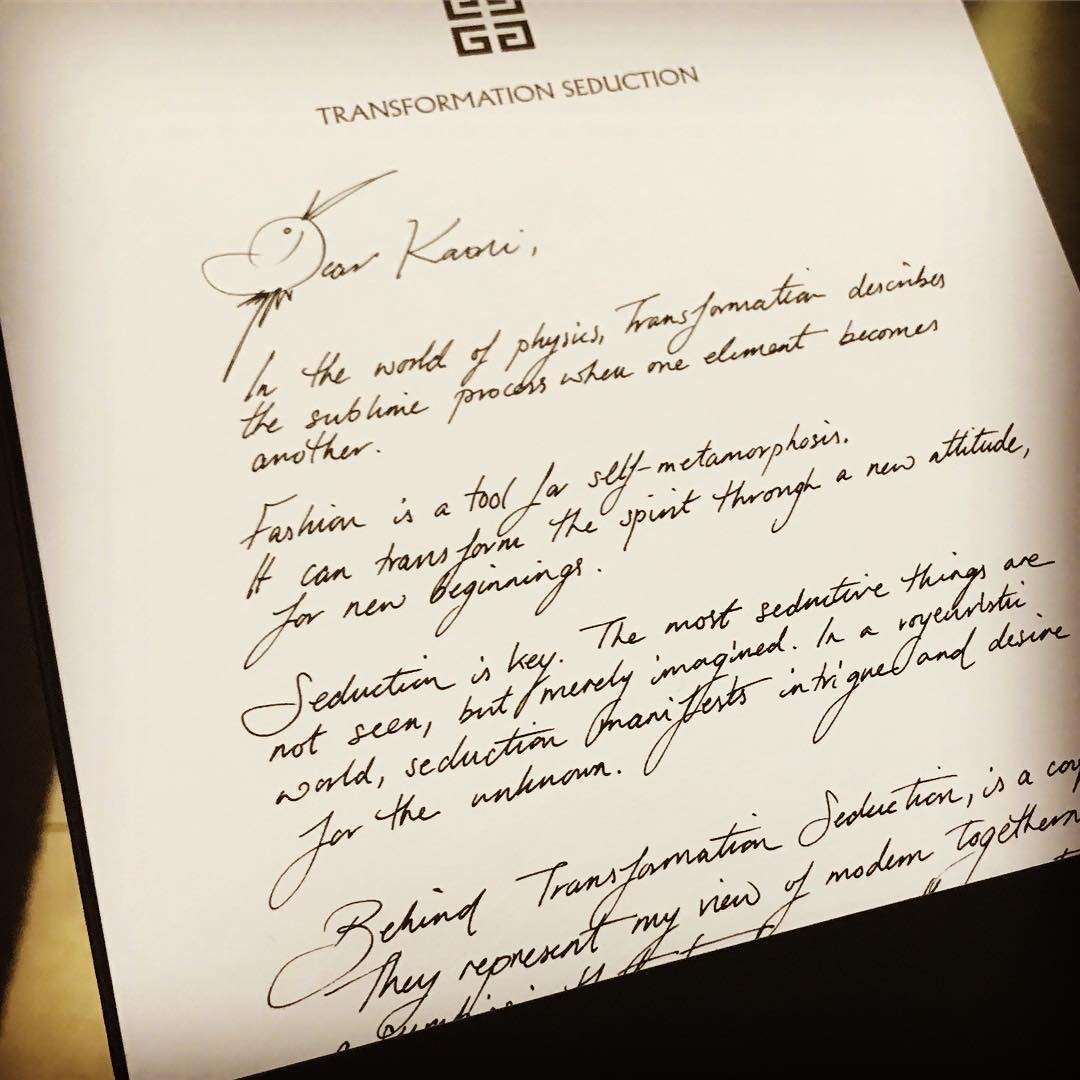 TRANSFORMATION SEDUCTION
Dear Kaori,
In the world of physics, Transformation describes
the sublime process when one element becomes
another.
Fashion is a tool for self-metamorphosis.
It can transform the spirit through a new attitude,
for new beginnings.
Seduction is key. The most seductive things are
not seen, but merely imagined. In a voyeuristic
world, seduction manifests intrigue and desire
for the unknown.
Behind Transformation Seduction, is a
They represent my view of modern
a